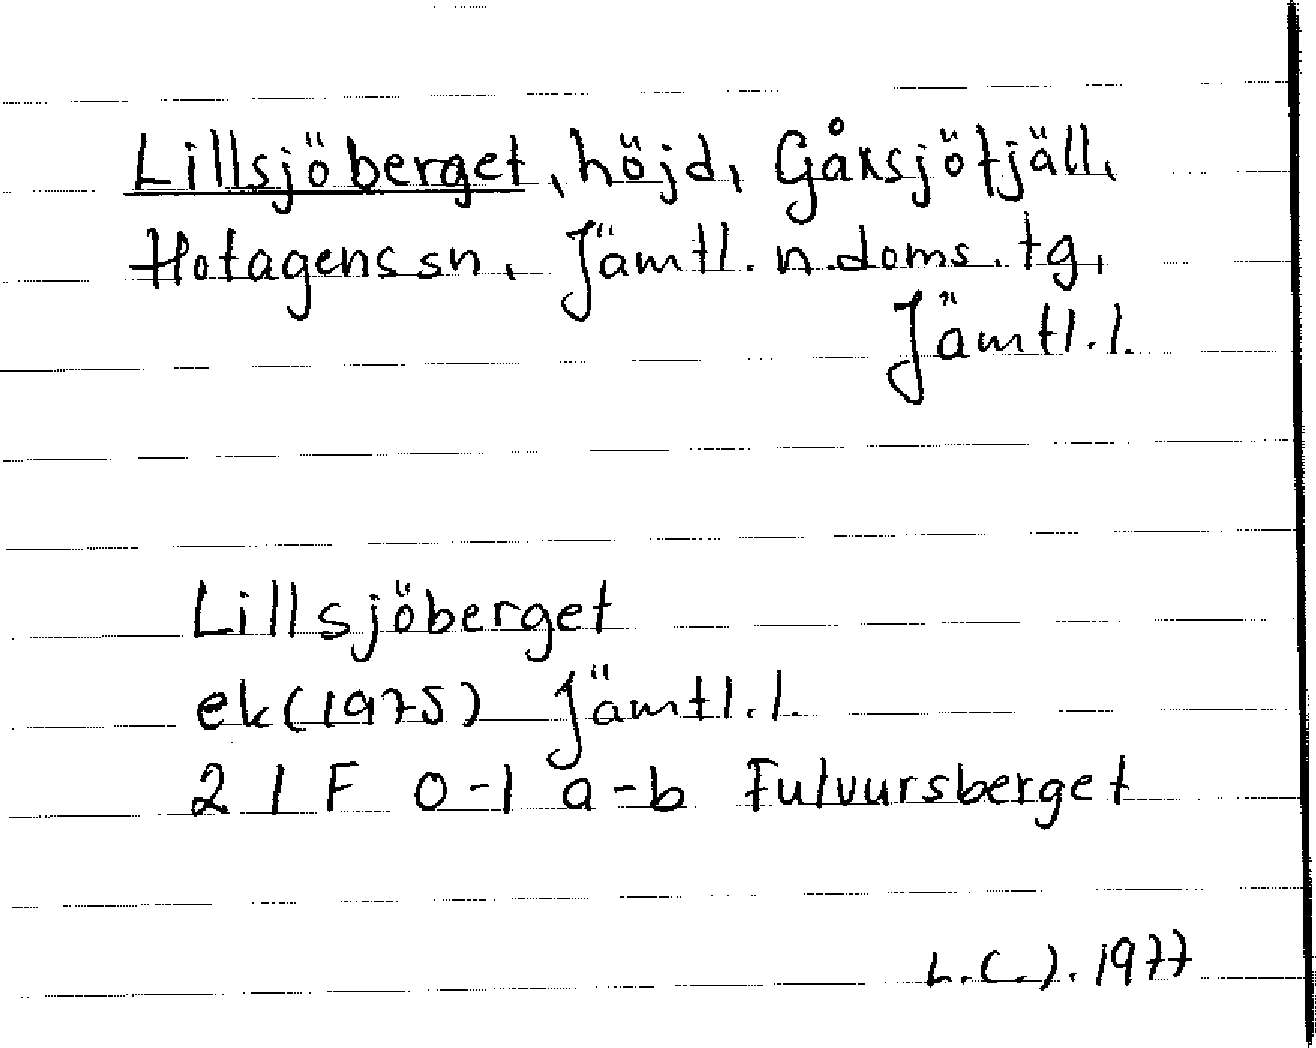 Lillsjöberget, höjd, Gåxsjöfjäll,
Hotagens sn, Jämtl. n. doms. tg,
Jämtl. l.
Lillsjöberget
ek (1975) Jämtl. l.
21F 0-1 a-b Fulvursberget
1977